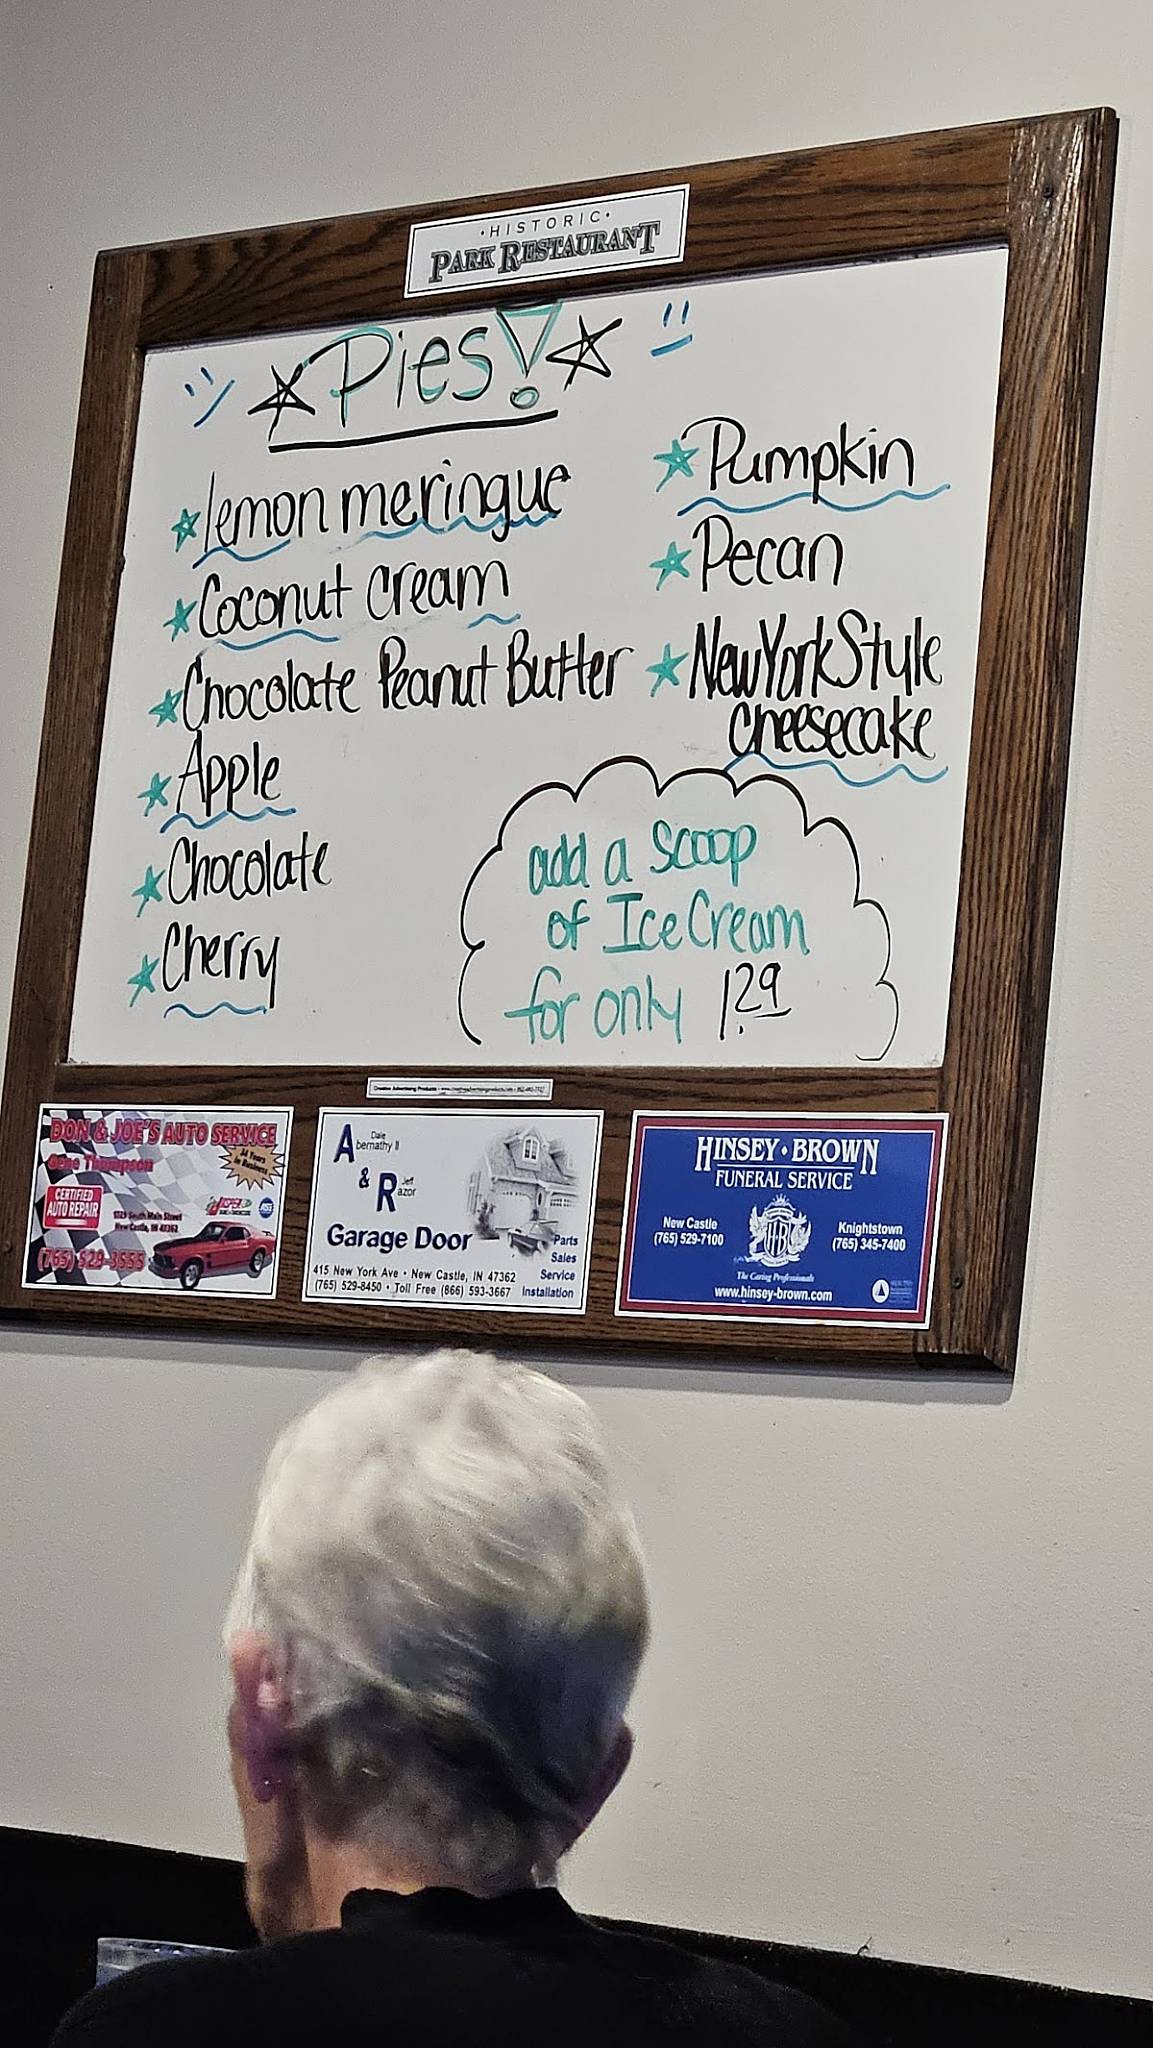 •HISTORIC•
PARK RESTAURANT
Pies!
lemon meringue
Coconut Cream
Chocolate Peanut Butter
Apple
Chocolate
Cherry
Pumpkin
Pecan
New York Style
Cheesecake
add a scoop
of Ice Cream
for only 1.29
DON & JOE'S AUTO SERVICE
Gene Thompson
34 Years
in Business
CERTIFIED
AUTO REPAIR
South Main Street
New Castle, IN 47362
(765) 529-3555
Dale
Abernathy II
&
Jeff
Razor
Garage Door
Parts
Sales
Service
Installation
415 New York Ave • New Castle, IN 47362
(765) 529-8450 • Toll Free (866) 593-3667
HINSEY • BROWN
FUNERAL SERVICE
New Castle
(765) 529-7100
HB
Knightstown
(765) 345-7400
The Caring Professionals
www.hinsey-brown.com